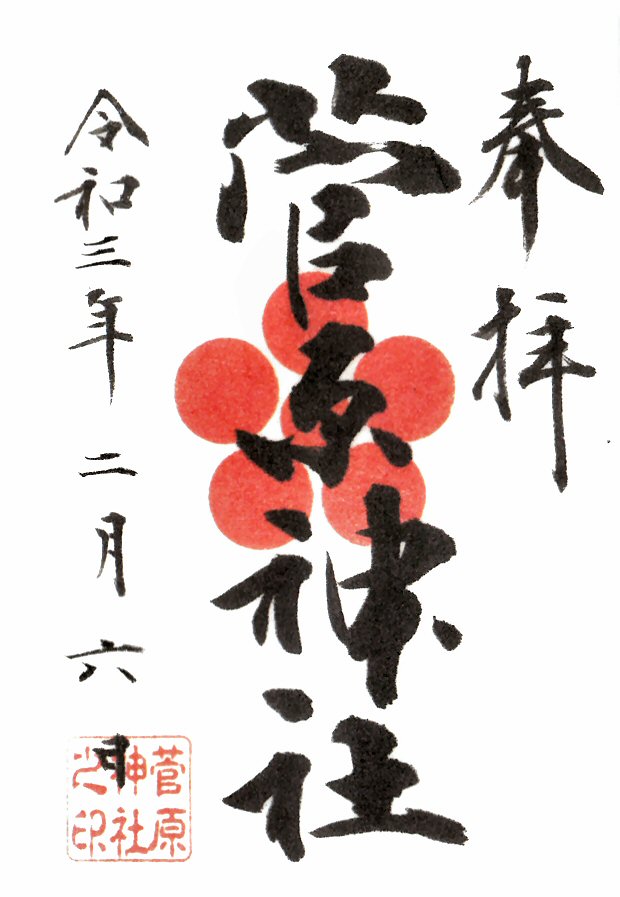 奉拝
菅原神社
令和三年 二月六日
菅原
神社
之印